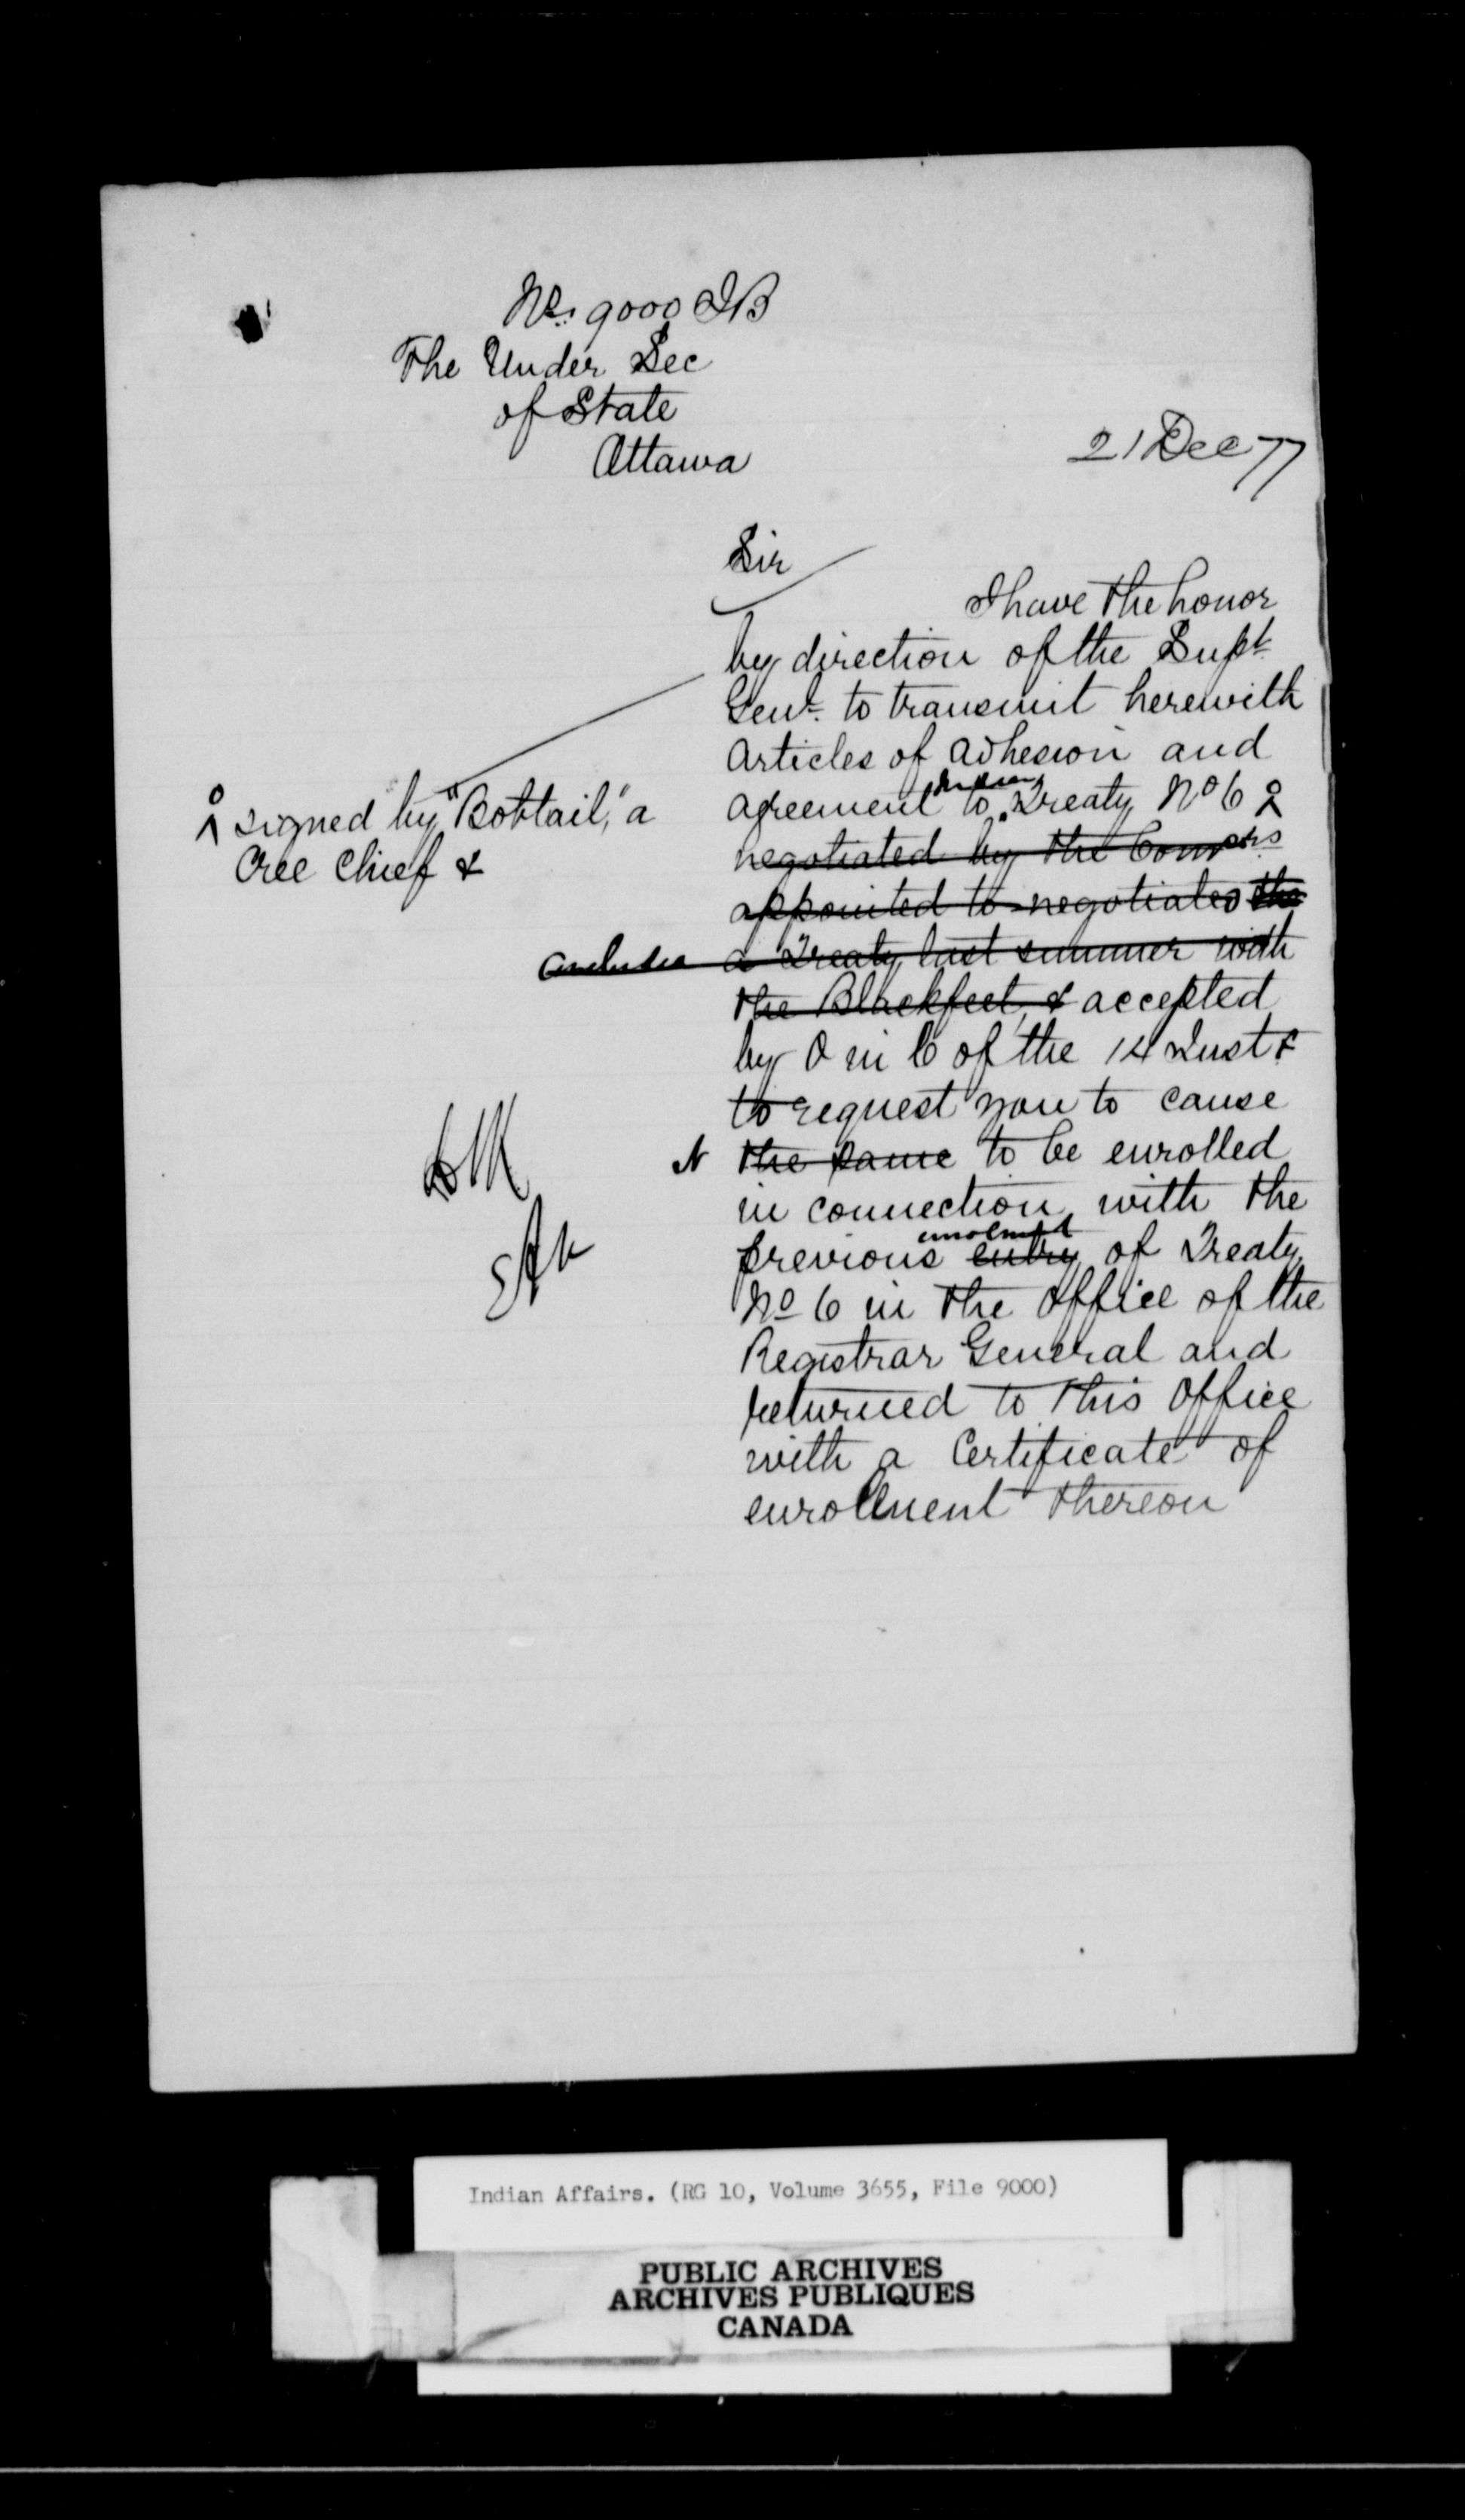 No. 9000 IB
The Under Sec
of State
Ottawa
21 Dec 77
Sir
I have the honor
by direction of the Supt
Genl. to transmit herewith
Articles of Adhesion and
Indian
agreement to Treaty No 6
signed by "Bobtail," a
Cree Chief &
negotiated by the Comrs
appointed to negotiate the
a Treaty last summer with
the Blackfeet & accepted
by O in C of the 14 Inst &
to request you to cause
the same to be enrolled
in connection with the
enrolment
previous entry of Treaty
No 6 in the Office of the
Registrar General and
returned to this Office
with a Certificate of
enrollment thereon
Indian Affairs. (RG 10, Volume 3655, File 9000)
PUBLIC ARCHIVES
ARCHIVES PUBLIQUES
CANADA